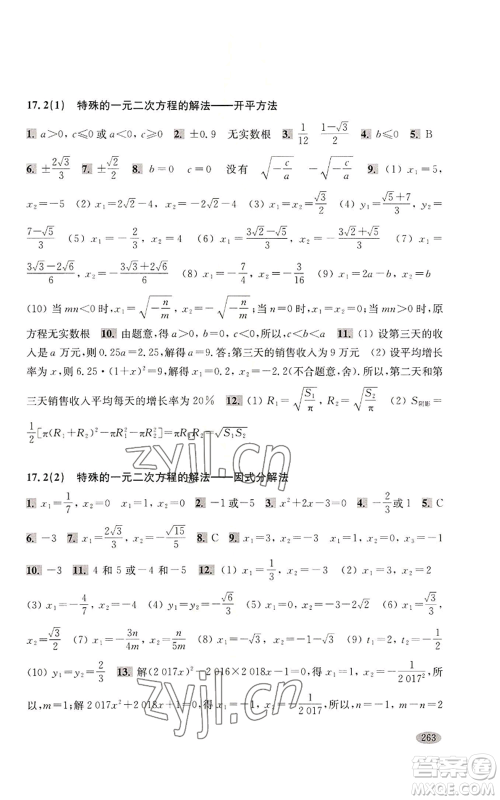 17.2(1) 特殊的一元二次方程的解法——开平方法
1. a>0, c≤0 或 a<0, c≥0 2. ±0.9 无实数根 3. 1/12 (1-√3)/2 4. b≤0 5. B
6. ±2√3/3 7. ±√3/3 8. b=0 没有 √(-c/a) -√(-c/a) 9. (1) x₁=5,
x₂=-5 (2) x₁=2√2, x₂=-2√2 (3) x₁=√6, x₂=-√6 (4) y₁=(√5+7)/3, y₂=
(7-√5)/3 (5) x₁=0, x₂=-2/3 (6) x₁=0, x₂=-3-2√2 (7) x₁=
(3√3-2√6)/6, x₂=(3√3+2√6)/6 (8) x₁=-7/4, x₂=-3/16 (9) x₁=2a-b, x₂=b
(10) 当 mn<0 时, x₁=√(-n/m), x₂=-√(-n/m); 当 mn>0 时, 原
方程无实数根 10. 由题意, 得 a>0, b=0, c<0 11. (1) 设第三天的收
入是 a 万元, 则 0.25a=2.25, 解得 a=9. 答: 第三天的销售收入为 9 万元 (2) 设平均增长
率为 x, 则 6.25·(1+x)²=9, 解得 x₁=0.2, x₂=-2.2(不合题意, 舍). 所以, 第二天和第
三天销售收入平均每天的增长率为 20% 12. (1) R₁=√(S₁/π), R₂=√(S₂/π) (2) S阴影=
1/2[π(R₁+R₂)²-πR₁²-πR₂²]=πR₁R₂=√(S₁S₂)
17.2(2) 特殊的一元二次方程的解法——因式分解法
1. x₁=1/7, x₂=0 x₁=1, x₂=0 2. -1 或 -5 3. x²+2x-3=0 4. -2/3 或 1 5. C
6. -3 7. x₁=2√3/3, x₂=-√15/5 8. C 9. x₁=1, x₂=-3
10. -3 11. 4 和 5 或 -5 和 -4 12. (1) x₁=1/3, x₂=-1
(3) x₁=-4/7
(4) y₁=0, y₂=-√6/3
(6) x₁=-3-2√2, x₂=0
x₂=2√3/3 (8) x₁=-3n/4m, x₂=n/5m (9) t₁=2, t₂=-1
(10) 13. 解(2 017x)²-2 016×2 018x-1=0, 得 x₁=1, x₂=-1/2 017², 所
以, m=1; 解 2 017x²+2 018x+1=0, 得 x₁=-1, x₂=-1/2 017, 所以, n=-1, m-n=2
263
zyjl.cn
答案圈
MXQE.COM